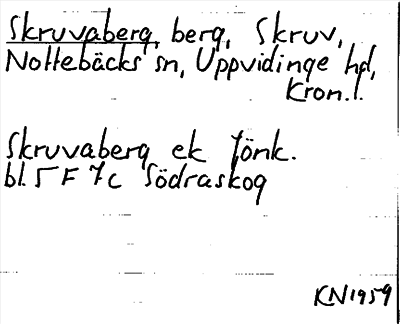 Skruvaberg, berg, Skruv,
Nottebäcks sn, Uppvidinge hd,
Kron.l.
Skruvaberg ek Jönk.
bl. 5 F 7 c Södraskog
KN1959